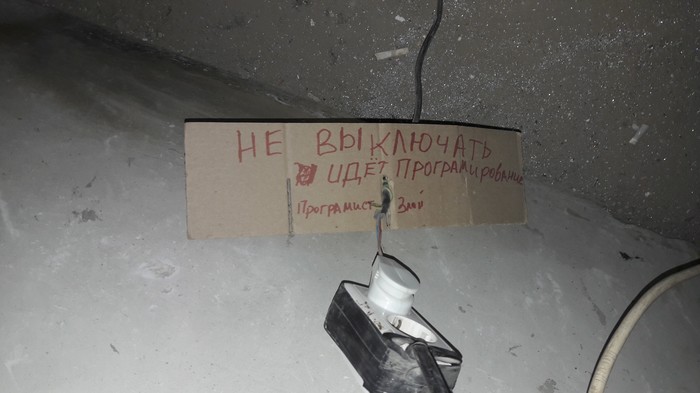 НЕ ВЫКЛЮЧАТЬ
ИДЁТ ПРОГРАМИРОВАНИЕ
ПРОГРАМИСТ Злой